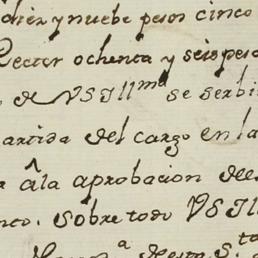 diez y nuebe pesos cinco
Rector ochenta y seis peso
de VS Illma se serbi
artida del cargo en la
a la aprobacion de
nco. sobre todo VS Il